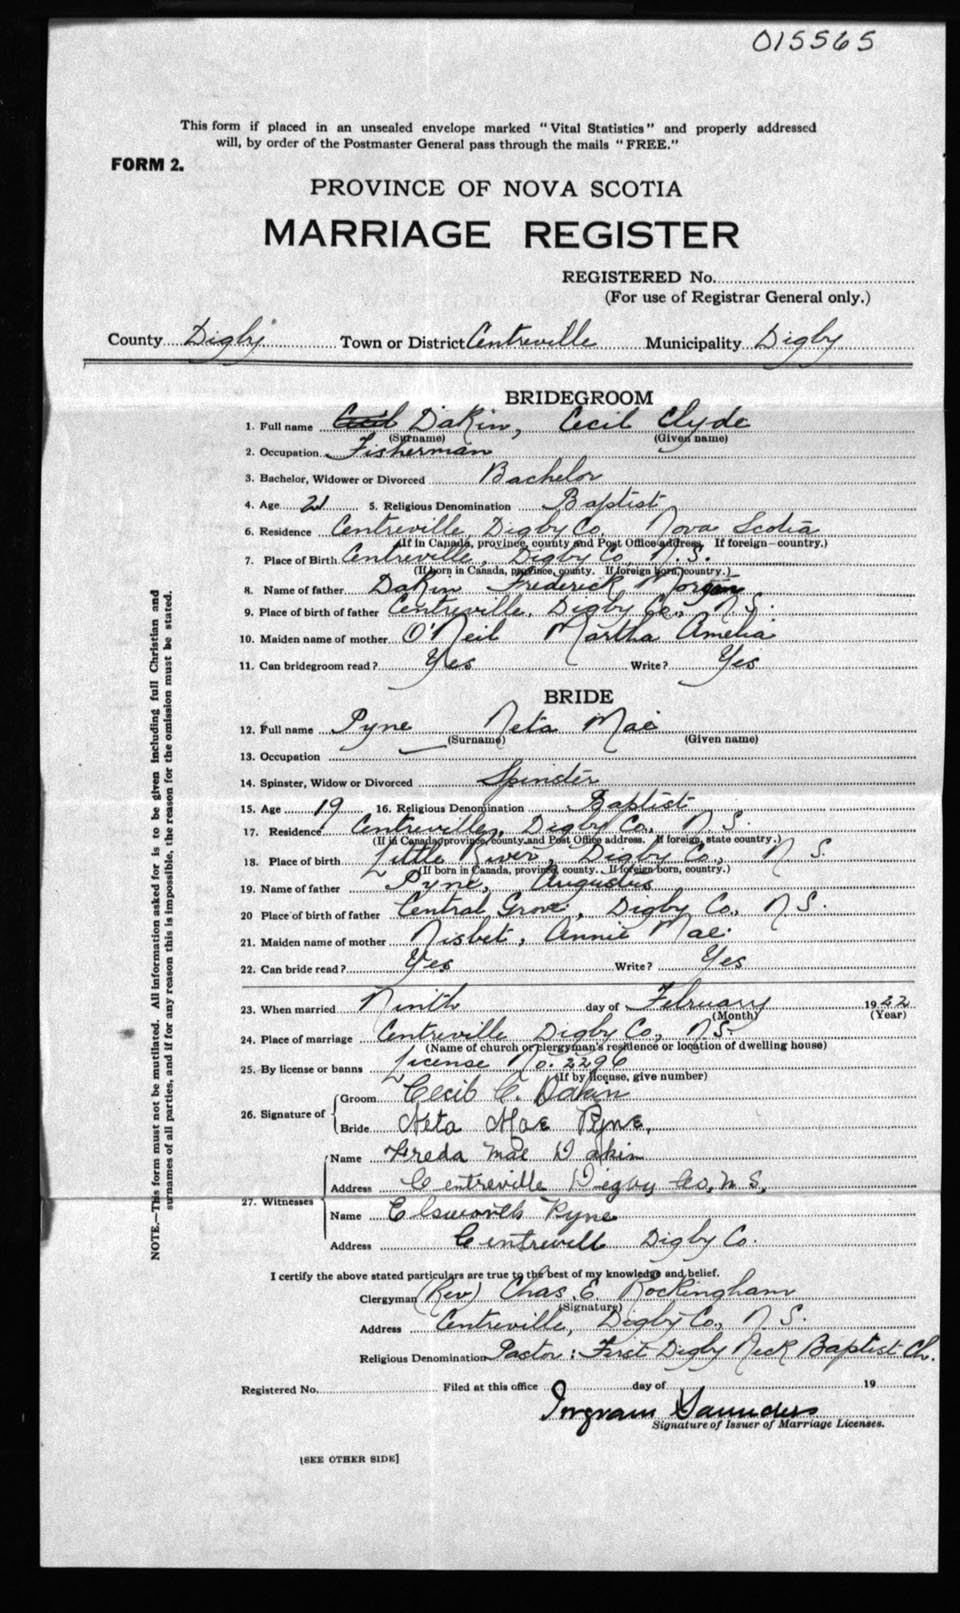 015565
This form if placed in an unsealed envelope marked "Vital Statistics" and properly addressed
will, by order of the Postmaster General pass through the mails "FREE."
FORM 2.
PROVINCE OF NOVA SCOTIA
MARRIAGE REGISTER
REGISTERED No.
(For use of Registrar General only.)
County Digby Town or District Centreville Municipality Digby
BRIDEGROOM
1. Full name Cecil Dakin, Cecil Clyde
(Surname) (Given name)
2. Occupation Fisherman
3. Bachelor, Widower or Divorced Bachelor
4. Age 21 5. Religious Denomination Baptist
6. Residence Centreville, Digby Co, Nova Scotia
(If in Canada, province, county and Post Office address. If foreign—country.)
7. Place of Birth Centreville, Digby Co, N.S.
(If born in Canada, province, county. If foreign born, country.)
8. Name of father Dakin Frederick Morgan
9. Place of birth of father Centreville, Digby Co., N.S.
10. Maiden name of mother O'Neil Martha Amelia
11. Can bridegroom read? Yes Write? Yes
BRIDE
12. Full name Pyne Neta Mae
(Surname) (Given name)
13. Occupation —
14. Spinster, Widow or Divorced Spinster
15. Age 19 16. Religious Denomination Baptist
17. Residence Centreville, Digby Co., N.S.
(If in Canada, province, county and Post Office address. If foreign, state country.)
18. Place of birth Little River, Digby Co., N.S.
(If born in Canada, province, county. If foreign born, country.)
19. Name of father Pyne, Augustus
20 Place of birth of father Central Grove, Digby Co., N.S.
21. Maiden name of mother Nisbet, Annie Mae.
22. Can bride read? Yes Write? Yes
23. When married Ninth day of February 1922
(Month) (Year)
24. Place of marriage Centreville Digby Co., N.S.
(Name of church or clergyman's residence or location of dwelling house)
25. By license or banns License No. 2296
(If by license, give number)
26. Signature of Groom Cecil C. Dakin
Bride Neta Mae Pyne,
27. Witnesses Name Freda Mae Dakin
Address Centreville Digby Co, N.S,
Name Elsworth Pyne
Address Centrevill Digby Co.
I certify the above stated particulars are true to the best of my knowledge and belief.
Clergyman (Rev) Chas. E. Rockingham
(Signature)
Address Centreville, Digby Co., N.S.
Religious Denomination Pastor: First Digby Neck Baptist Ch.
Registered No. Filed at this office day of 19
Ingram Saunders
Signature of Issuer of Marriage Licenses.
[SEE OTHER SIDE]
NOTE.—This form must not be mutilated. All information asked for is to be given including full Christian and
surnames of all parties, and if for any reason this is impossible, the reason for the omission must be stated.